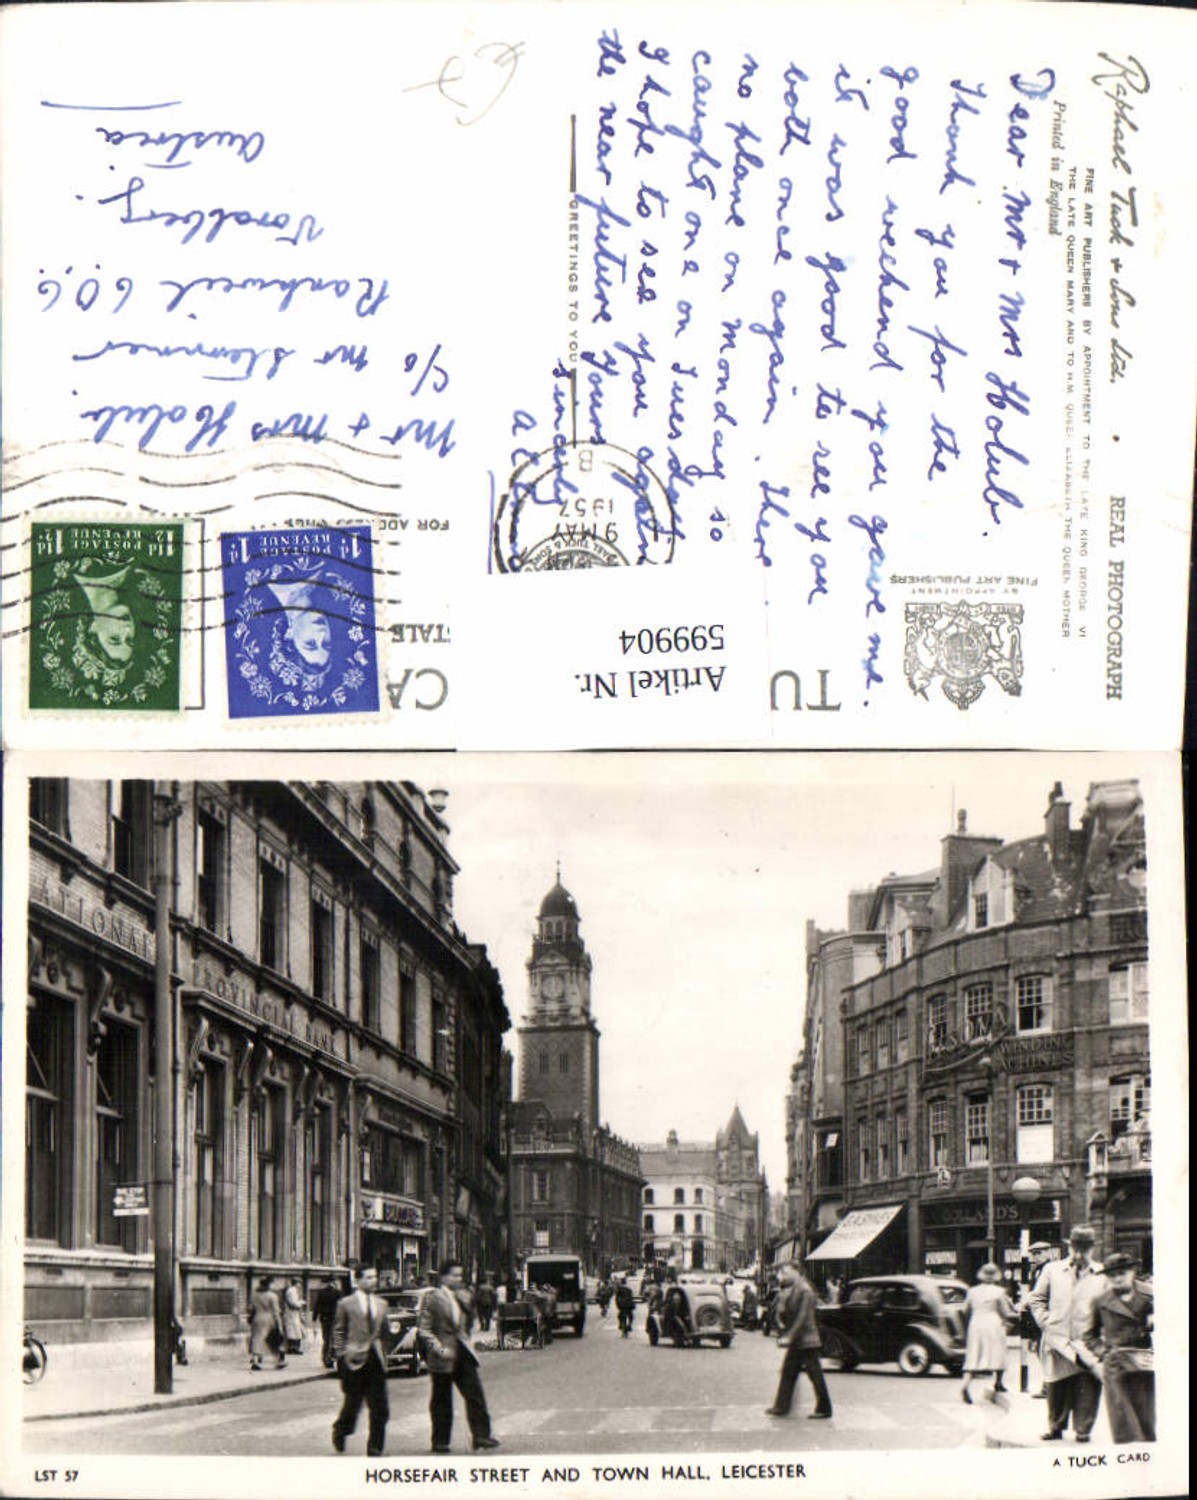 Raphael Tuck & Sons Ltd. • REAL PHOTOGRAPH
FINE ART PUBLISHERS BY APPOINTMENT TO THE LATE KING GEORGE VI
THE LATE QUEEN MARY AND TO H.M. QUEEN ELIZABETH THE QUEEN MOTHER
Printed in England
Dear Mr & Mrs Holub.
Thank you for the
good weekend you gave me.
it was good to see you
both once again. There
no plane on Monday so
caught one on Tuesday
I hope to see you again
the near future Yours
sincerely
GREETINGS TO YOU
BY APPOINTMENT
FINE ART PUBLISHERS
TU
CA
FOR ADDRESS ONLY
9 MAY
1957
B
1½d POSTAGE REVENUE 1½d
1d POSTAGE REVENUE 1d
Mr & Mrs Holub.
c/o Mr
Rankweil 606
Voralberg.
Austria
Artikel Nr.
599904
NATIONAL
PROVINCIAL BANK
WINDING
MACHINES
GOLLAND'S
LST 57
HORSEFAIR STREET AND TOWN HALL, LEICESTER
A TUCK CARD